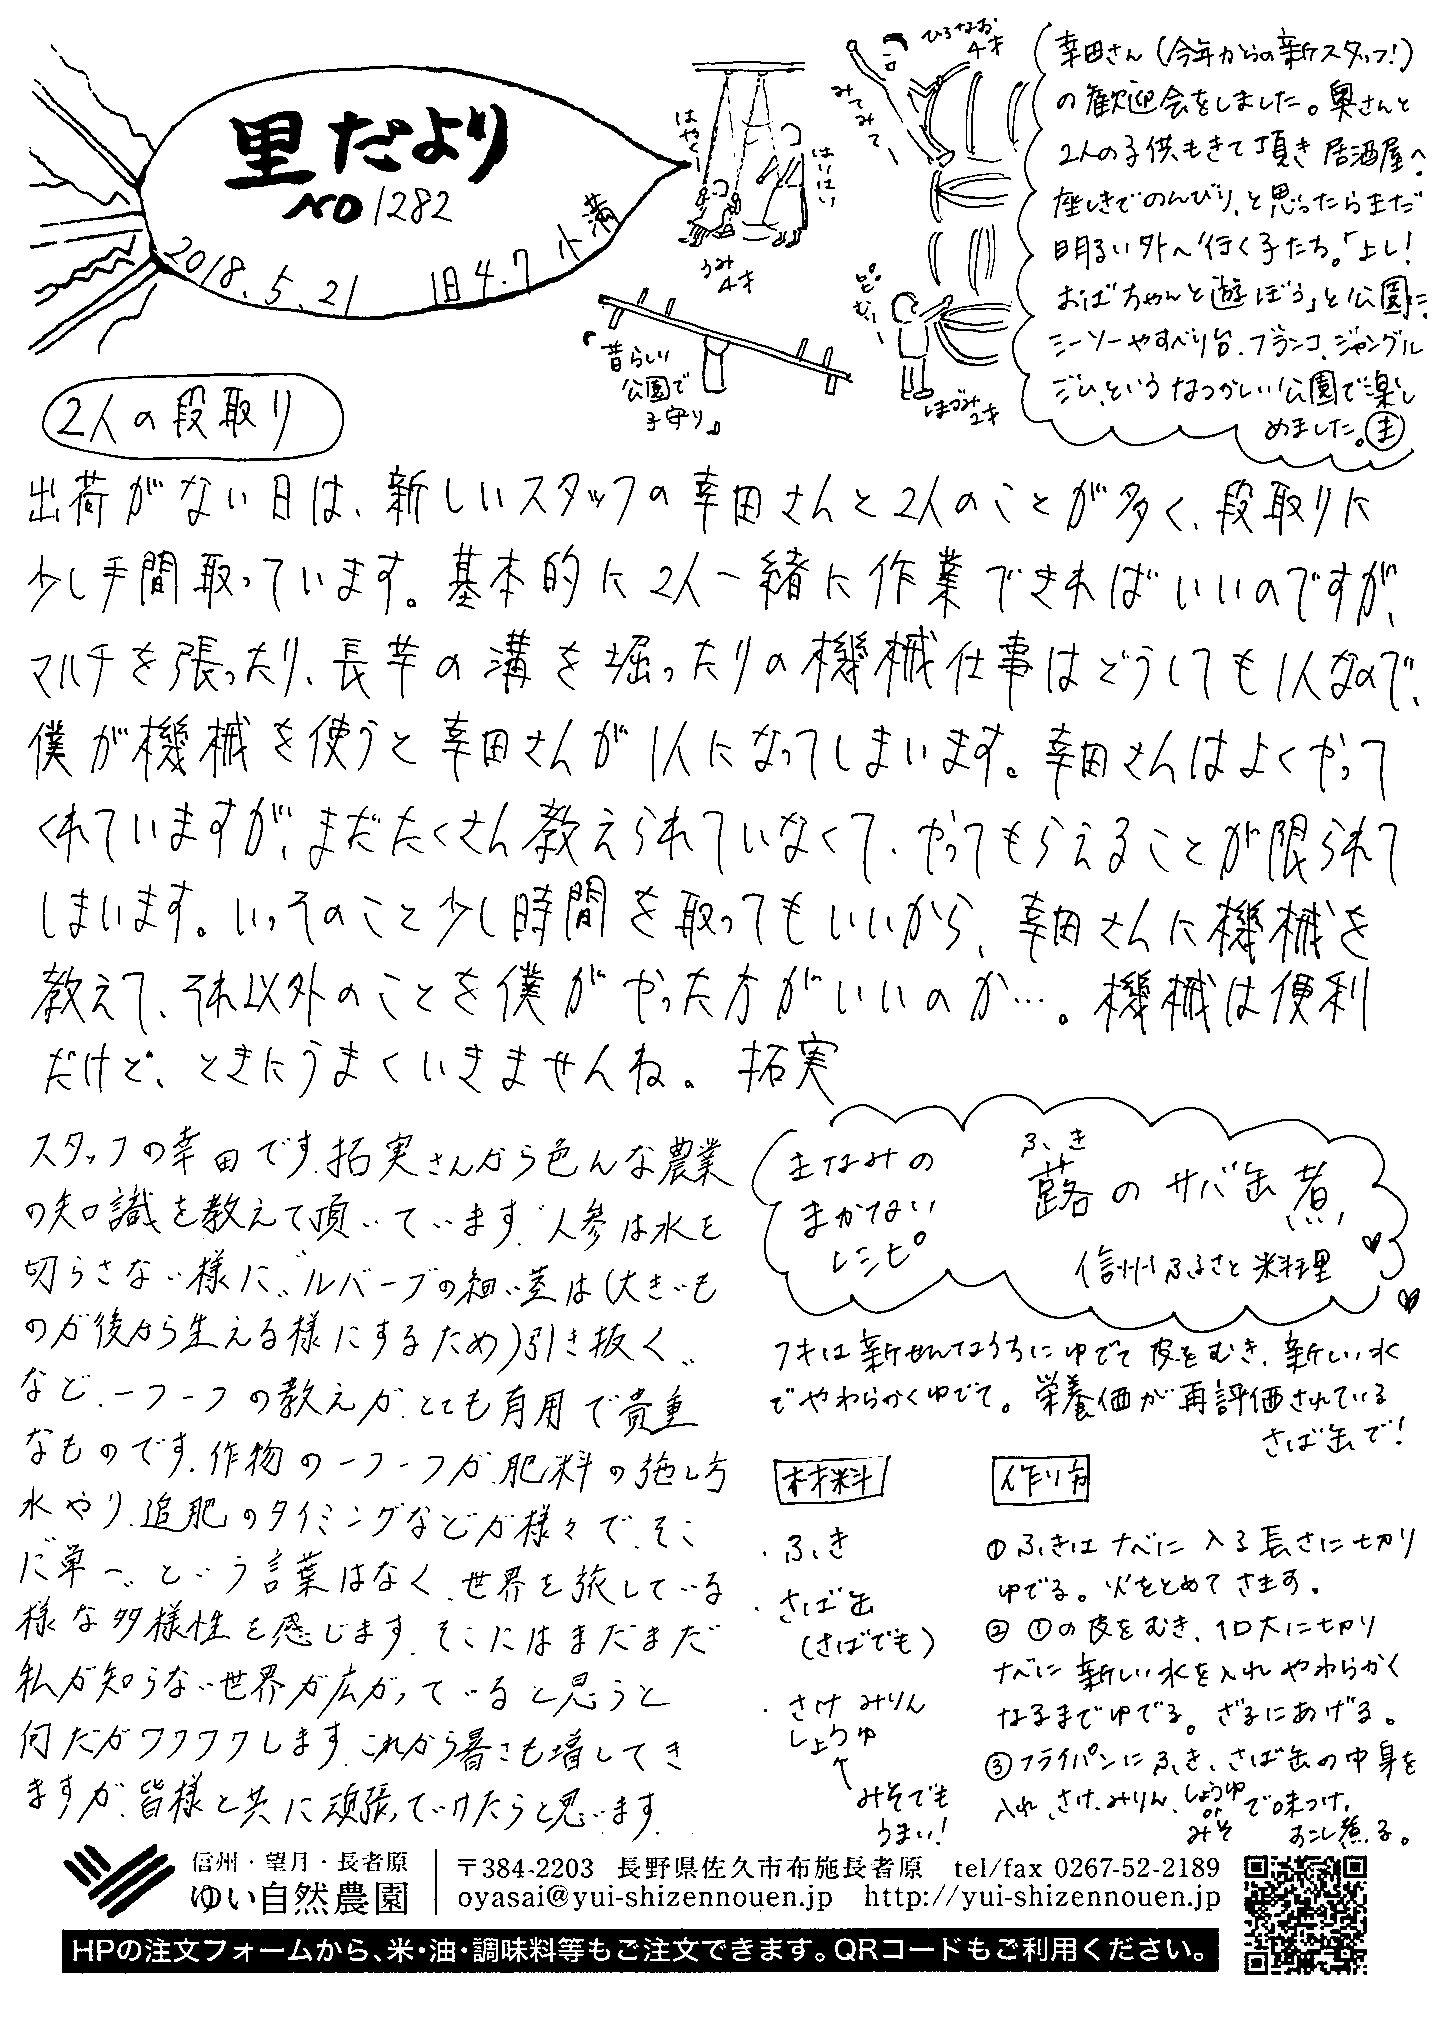 里だより
NO 1282
2018.5.21 旧4.7 小満
はやくー
はいはい
うみ
4才
みてみてー
ひろなお
4才
ほづみ
2才
『昔らしい
公園で
子守り』
幸田さん(今年からの新スタッフ!)
の歓迎会をしました。奥さんと
2人の子供もきて頂き居酒屋へ。
座しきでのんびり、と思ったらまだ
明るい外へ行く子たち。「よし!
おばちゃんと遊ぼう」と公園に。
シーソーやすべり台、ブランコ、ジャングル
ジム、というなつかしい公園で楽し
めました。㊤
2人の段取り
出荷がない日は、新しいスタッフの幸田さんと2人のことが多く、段取りに
少し手間取っています。基本的に2人一緒に作業できればいいのですが、
マルチを張ったり、長芋の溝を堀ったりの機械仕事はどうしても1人なので、
僕が機械を使うと幸田さんが1人になってしまいます。幸田さんはよくやって
くれていますが、まだたくさん教えられていなくて、やってもらえることが限られて
しまいます。いっそのこと少し時間を取ってもいいから、幸田さんに機械を
教えて、それ以外のことを僕がやった方がいいのか…。機械は便利
だけど、ときにうまくいきませんね。 拓実
スタッフの幸田です.拓実さんから色んな農業
の知識を教えて頂いています.゛人参は水を
切らさない様に゛゛ルバーブの細い茎は(大きいも
のが後から生える様にするため)引き抜く゛
など.一つ一つの教えが.とても有用で貴重
なものです.作物の一つ一つが.肥料の施し方
水やり.追肥のタイミングなどが様々で.そこ
に゛単一゛という言葉はなく.世界を旅している
様な多様性を感じます.そこにはまだまだ
私が知らない世界が広がっていると思うと
何だかワクワクします.これから暑さも増してき
ますが.皆様と共に頑張っていけたらと思います.
まなみの
まかない
レシピ
ふき
蕗のサバ缶煮
信州ふるさと料理
フキは新せんなうちにゆでて皮をむき、新しい水
でやわらかくゆでて。栄養価が再評価されている
さば缶で!
材料
・ふき
・さば缶
(さばでも)
・さけ みりん
しょうゆ
↑
みそでも
うまい!
作り方
① ふきはナベに入る長さに切り
ゆでる。火をとめてさます。
② ①の皮をむき、1口大に切り
ナベに新しい水を入れやわらかく
なるまでゆでる。ざるにあげる。
③ フライパンにふき、さば缶の中身を
入れ、さけ、みりん、しょうゆorみそで味つけ、
すこし煮る。
信州・望月・長者原
ゆい自然農園
〒384-2203 長野県佐久市布施長者原 tel/fax 0267-52-2189
oyasai@yui-shizennouen.jp http://yui-shizennouen.jp
HPの注文フォームから、米・油・調味料等もご注文できます。QRコードもご利用ください。